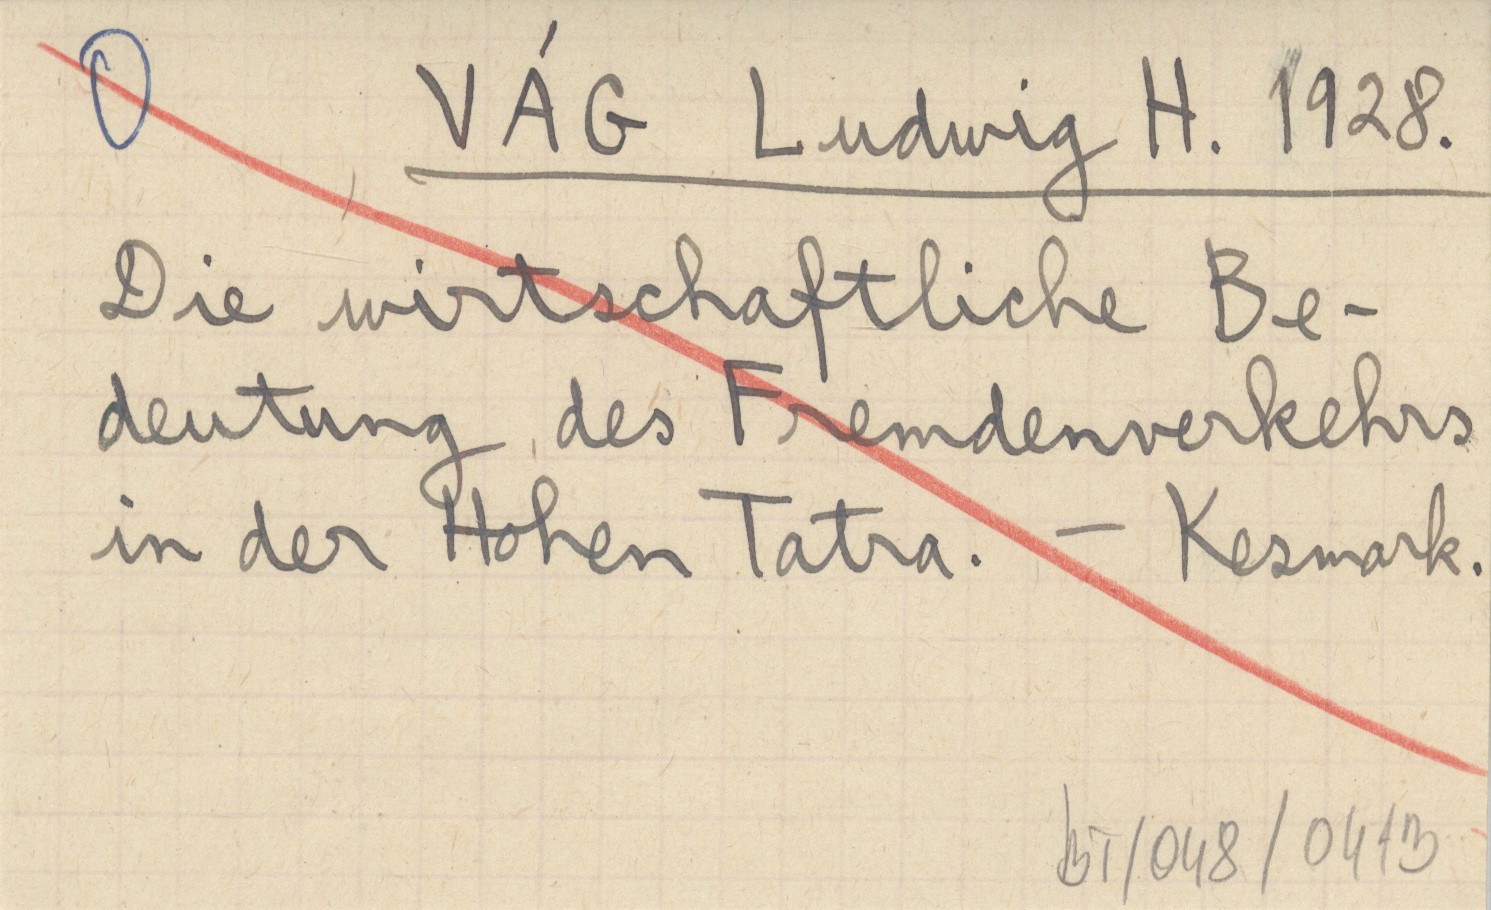 VÁG Ludwig H. 1928.
Die wirtschaftliche Be-
deutung des Fremdenverkehrs
in der Hohen Tatra. – Kesmark.
BT/048/0413